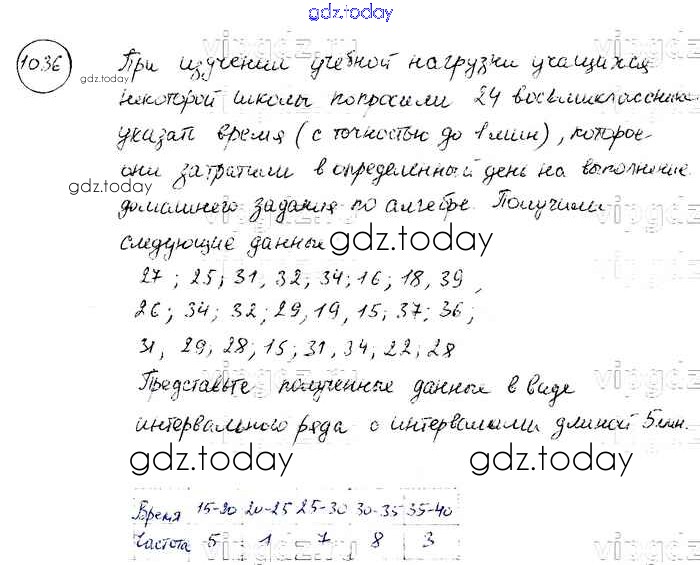 gdz.today
1036 При изучении учебной нагрузки учащихся
gdz.today
некоторой школы попросили 24 восьмиклассника
указать время (с точностью до 1 мин), которое
они затратили в определенный день на выполнение
gdz.today
домашнего задания по алгебре. Получили
следующие данные gdz.today
27; 25; 31, 32; 34; 16; 18, 39,
26; 34; 32; 29, 19, 15; 37; 36;
31, 29; 28; 15; 31, 34; 22; 28
Представьте полученные данные в виде
интервального ряда с интервалами длиной 5 мин.
gdz.today gdz.today
Время 15-20 20-25 25-30 30-35 35-40
Частота 5 1 7 8 3